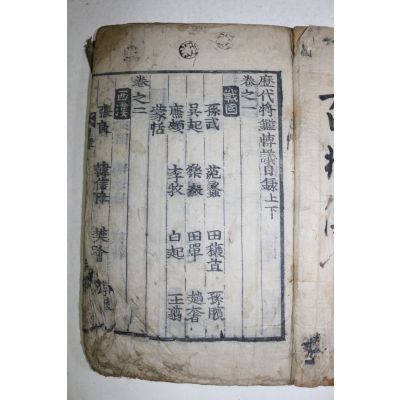 歷代將鑑博議目録上下
卷之一
戰國
孫武 范蠡 田穰苴 孫臏
吳起 樂毅 田單 趙奢
廉頗 李牧 白起 王翦
蒙恬
卷之二
西漢
張良 韓信 樊噲